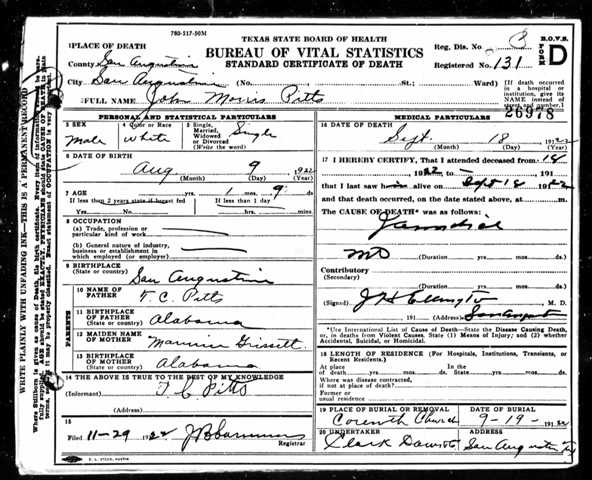 780-517-50M
TEXAS STATE BOARD OF HEALTH
BUREAU OF VITAL STATISTICS
STANDARD CERTIFICATE OF DEATH
Reg. Dis. No. 3
Registered No. 131
B.O.V.S.
FORM D
PLACE OF DEATH
County San Augustine
City San Augustine (No. , St.; Ward)
[If death occurred in a hospital or institution, give its NAME instead of street and number.]
FULL NAME John Morris Pitts
26978
PERSONAL AND STATISTICAL PARTICULARS
3 SEX Male
4 Color or Race White
5 Single, Married, Widowed or Divorced (Write the word) Single
6 DATE OF BIRTH
Aug. 9 1922
(Month) (Day) (Year)
7 AGE
yrs. 1 mos. 9 ds.
If less than 2 years state if breast fed
If less than 1 day
Yes No hours min.
8 OCCUPATION
(a) Trade, profession or particular kind of work
(b) General nature of industry, business or establishment in which employed (or employer)
9 BIRTHPLACE
(State or country) San Augustine
PARENTS
10 NAME OF FATHER T. C. Pitts
11 BIRTHPLACE OF FATHER (State or country) Alabama
12 MAIDEN NAME OF MOTHER
13 BIRTHPLACE OF MOTHER (State or country) Alabama
14 THE ABOVE IS TRUE TO THE BEST OF MY KNOWLEDGE
(Informant) T C Pitts
(Address)
15
Filed 11-29 1922
Registrar
MEDICAL PARTICULARS
16 DATE OF DEATH
Sept. 18 1922
(Month) (Day) (Year)
17 I HEREBY CERTIFY, That I attended deceased from 18
1922 to
that I last saw him alive on Sept 18 1922
and that death occurred, on the date stated above, at m.
The CAUSE OF DEATH* was as follows:
(Duration) yrs. mos. ds.
Contributory
(Secondary)
(Duration) yrs. mos. ds.
(Signed) J H Ellington M. D.
191 (Address) San Augusti
*Use International List of Cause of Death—State the Disease Causing Death, or, in deaths from Violent Causes, State (1) Means of Injury; and (2) whether Accidental, Suicidal, or Homicidal.
18 LENGTH OF RESIDENCE (For Hospitals, Institutions, Transients, or Recent Residents.)
At place of death yrs. mos. ds. In the State yrs. mos. ds.
Where was disease contracted, if not at place of death?
Former or usual residence
19 PLACE OF BURIAL OR REMOVAL
Corenth Church
DATE OF BURIAL
9-19-1922
20 UNDERTAKER
Clark Downs
ADDRESS
San Augustine Tex
WRITE PLAINLY WITH UNFADING INK—THIS IS A PERMANENT RECORD